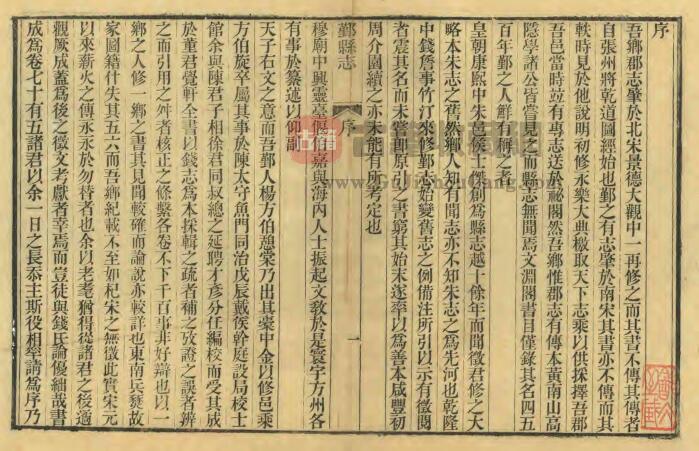 序
吾鄉郡志肇於北宋景德大觀中一再修之而其書不傳其傳者
自張州將乾道圖經始也鄞之有志肇於南宋其書亦不傳而其
軼時見於他說明初修永樂大典檄取天下志乘以供採擇吾郡
吾邑當時竝有專志送於祕閣然吾鄉惟郡志有傳本黃南山高
隱學諸公皆嘗見之而縣志無聞焉文淵閣書目僅錄其名四五
百年鄞之人鮮有稱之者
皇朝康熙中朱邑侯士傑創為縣志越十餘年而聞徵君修之大
略本朱志之舊然鄉人知有聞志亦不知朱志之為先河也乾隆
中錢詹事竹汀來修鄞志始變舊志之例備注所引以示有徵閱
者震其名而未嘗即原引之書窮其始末遂率以為善本咸豐初
周介園續之亦未能有所考定也
鄞縣志
序
一
穆廟中興靈臺偃伯嘉與海內人士振起文教於是寰宇方州各
有事於纂述以仰副
天子右文之意而吾鄞人楊方伯憩棠乃出其橐中金以修邑乘
方伯旋卒屬其事於陳太守魚門同治戊辰戴侯幹庭設局校士
館余與陳君子相徐君同叔總之延聘才彥分任編校而受其成
於董君覺軒全書以錢志為本採輯之疏者補之攷證之誤者辨
之而引用之舛者核正之條繫各卷不下千百事非好辯也以一
鄉之人修一鄉之書其見聞較確而論說亦較詳也東南兵燹故
家圖籍什失其五六而吾鄉紀載不至如杞宋之無徵此實宋元
以來薪火之傳永永於勿替者也余以老耄猶得從諸君之後適
觀厥成蓋為後之徵文考獻者幸焉而豈徒與錢氏論優絀哉書
成為卷七十有五諸君以余一日之長忝主斯役相率請為序乃
www.GuJiShouCang.com